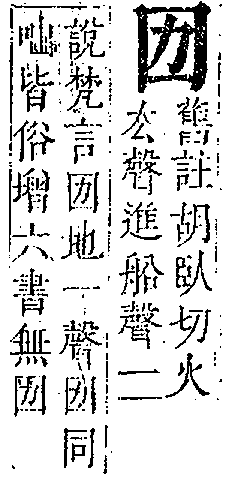 㘞
舊註胡臥切火
厺聲進船聲一
說梵言㘞地一聲㘞同
咄皆俗增六書無㘞